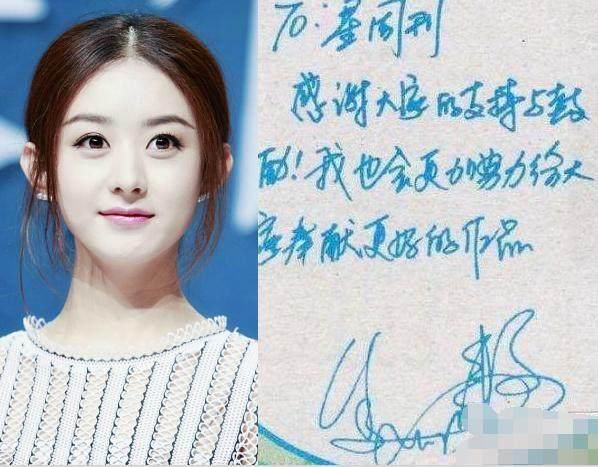 To：星周刊
感谢大家的支持与鼓
励！我也会更加努力给大
家奉献更好的作品